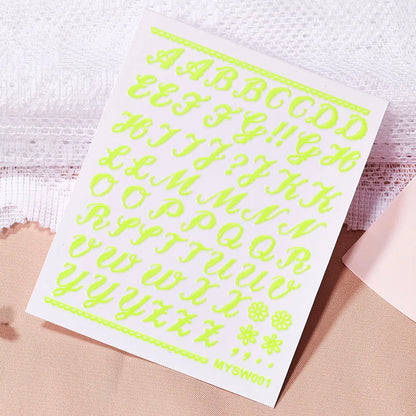 AABBCCDD
EEFFG!!GH
HIIJ?JKK
LLMMNN
OOPPQQR
RSSTTUUV
VWWXX
YYYZZZ
,,..
MYSW001